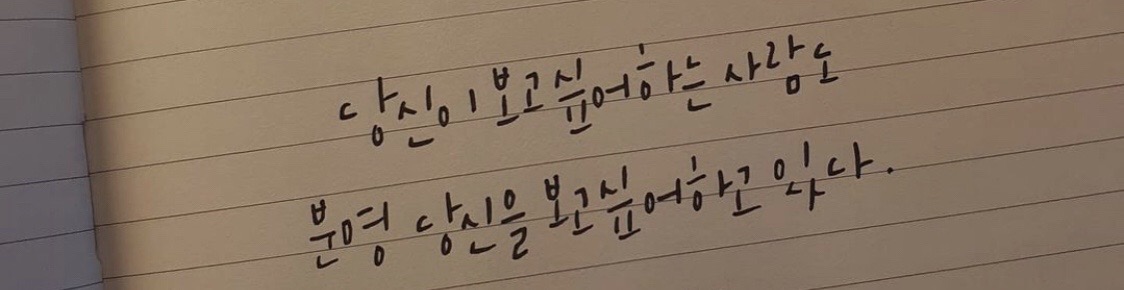 당신이 보고싶어하는 사람도
분명 당신을 보고싶어하고 있다.